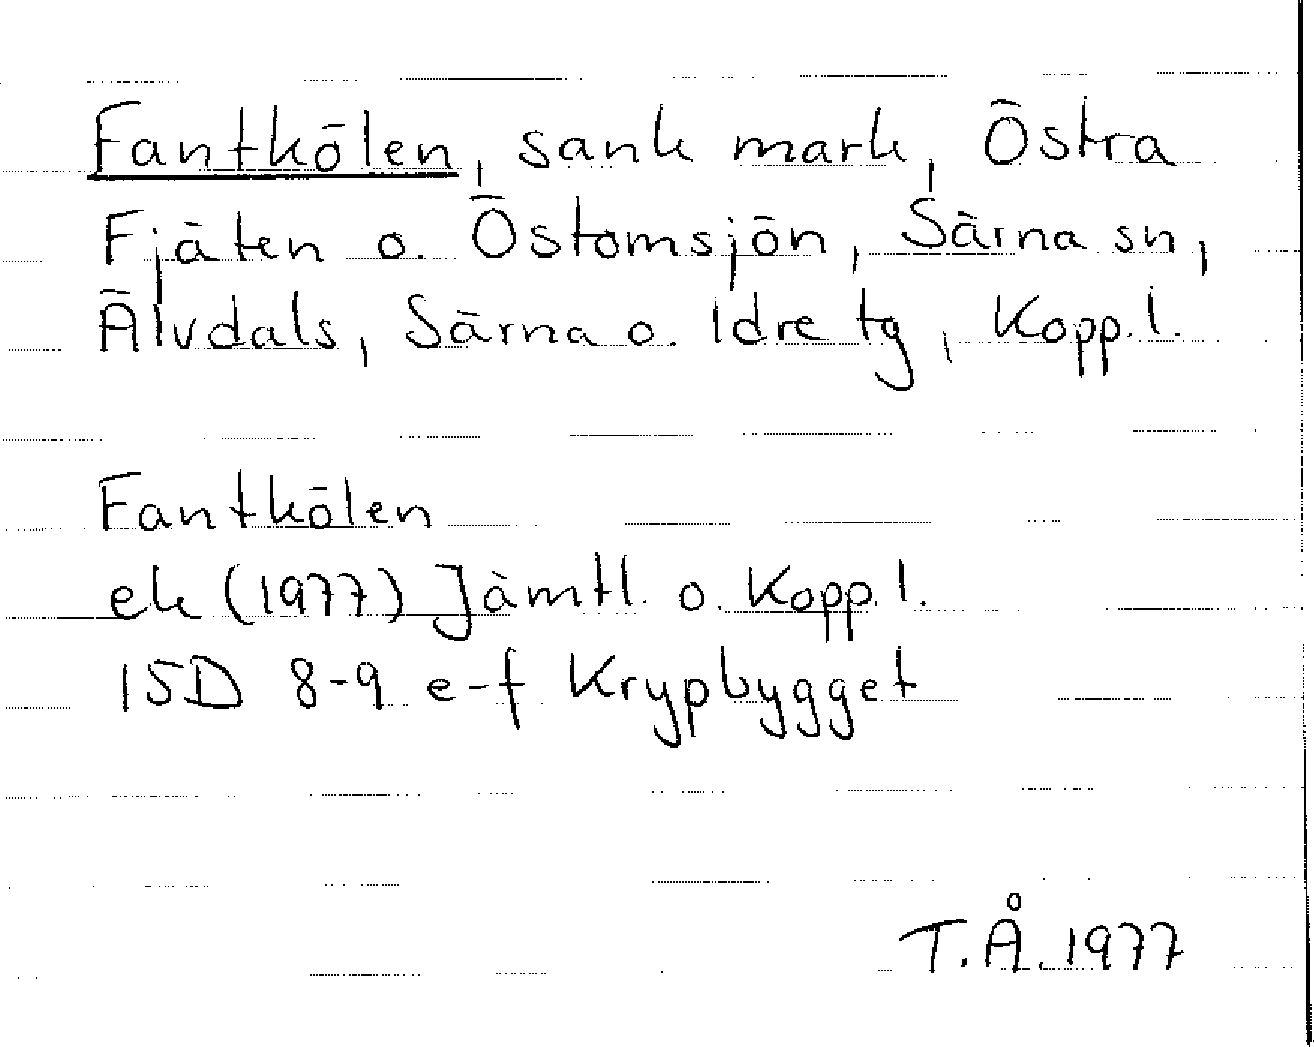 Fantkölen, sank mark, Östra
Fjäten o. Östomsjön, Särna sn,
Älvdals, Särna o. Idre tg, Kopp. l.
Fantkölen
ek (1977) Jämtl. o. Kopp. l.
15D 8-9 e-f Krypbygget
T.Å. 1977